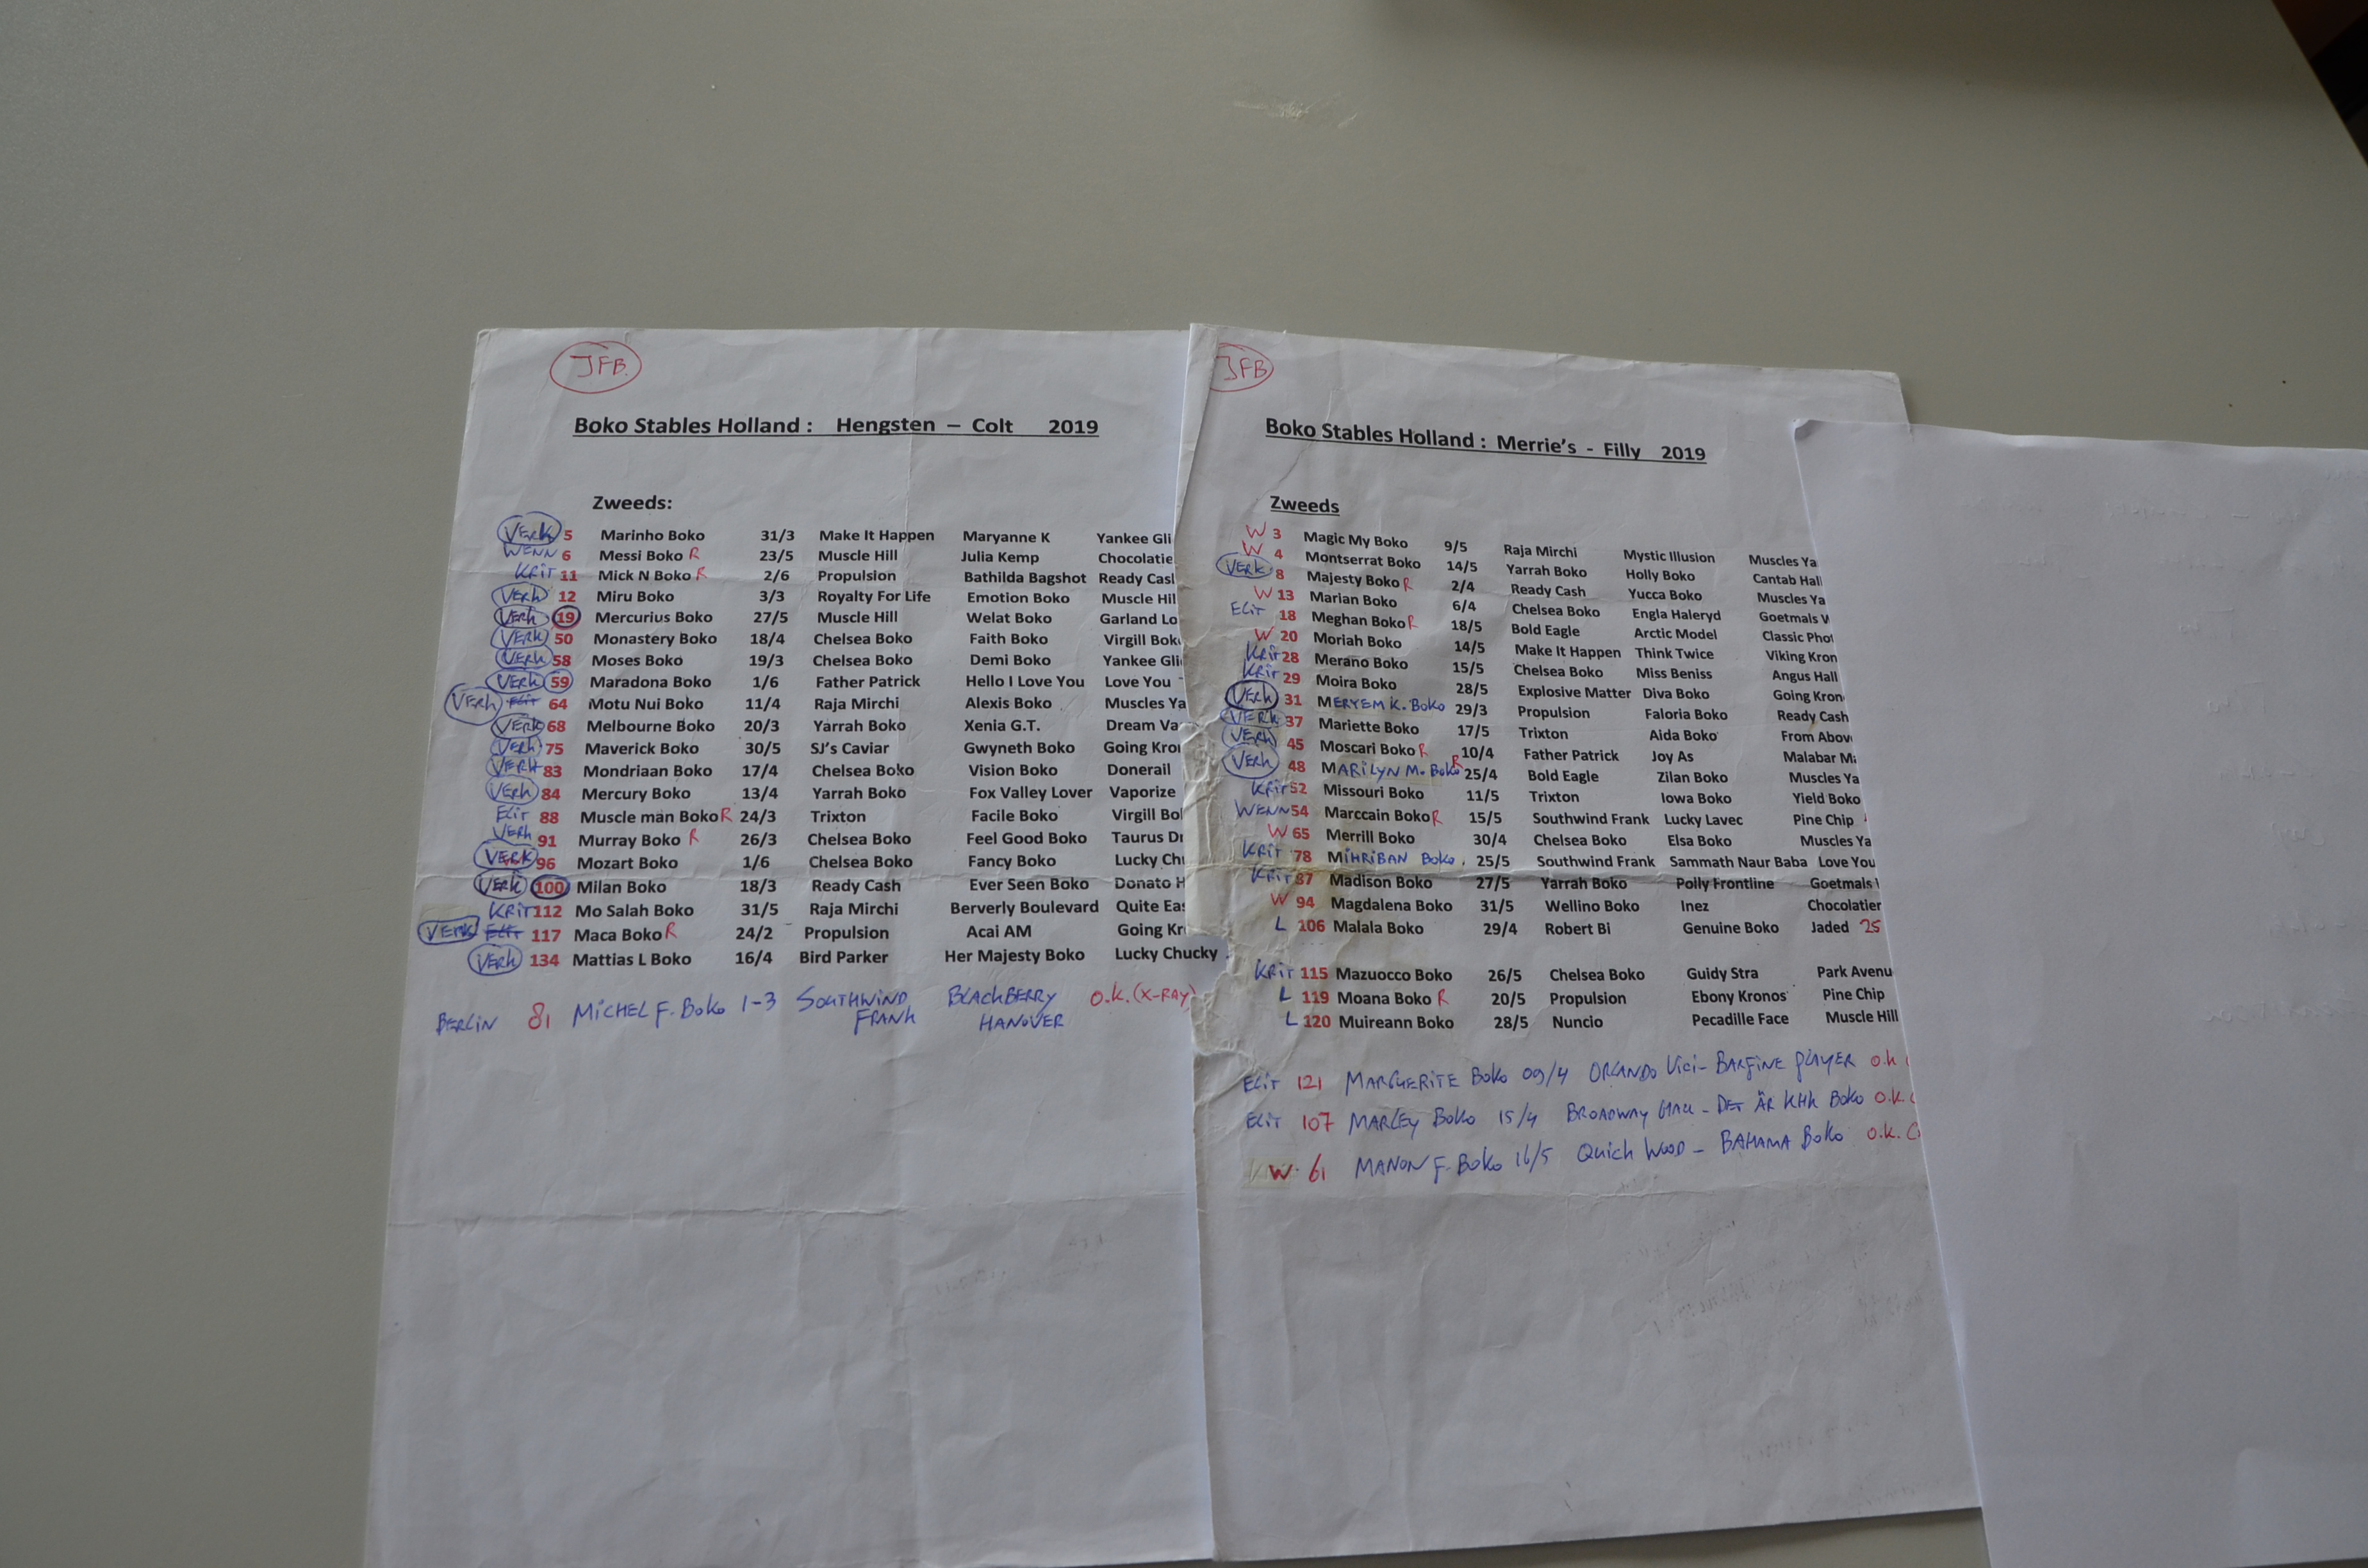 JFB.
Boko Stables Holland : Hengsten – Colt 2019
Zweeds:
VERK 5 Marinho Boko 31/3 Make It Happen Maryanne K Yankee Gli
WENN 6 Messi Boko R 23/5 Muscle Hill Julia Kemp Chocolatie
KRIT 11 Mick N Boko R 2/6 Propulsion Bathilda Bagshot Ready Casl
VERK 12 Miru Boko 3/3 Royalty For Life Emotion Boko Muscle Hil
VERK 19 Mercurius Boko 27/5 Muscle Hill Welat Boko Garland Lo
VERK 50 Monastery Boko 18/4 Chelsea Boko Faith Boko Virgill Bok
VERK 58 Moses Boko 19/3 Chelsea Boko Demi Boko Yankee Gli
VERK 59 Maradona Boko 1/6 Father Patrick Hello I Love You Love You
VERK ELIT 64 Motu Nui Boko 11/4 Raja Mirchi Alexis Boko Muscles Ya
VERK 68 Melbourne Boko 20/3 Yarrah Boko Xenia G.T. Dream Va
VERK 75 Maverick Boko 30/5 SJ's Caviar Gwyneth Boko Going Kro
VERK 83 Mondriaan Boko 17/4 Chelsea Boko Vision Boko Donerail
VERK 84 Mercury Boko 13/4 Yarrah Boko Fox Valley Lover Vaporize
ELIT 88 Muscle man Boko R 24/3 Trixton Facile Boko Virgill Bo
VERK 91 Murray Boko R 26/3 Chelsea Boko Feel Good Boko Taurus D
VERK 96 Mozart Boko 1/6 Chelsea Boko Fancy Boko Lucky Ch
VERK 100 Milan Boko 18/3 Ready Cash Ever Seen Boko Donato H
KRIT 112 Mo Salah Boko 31/5 Raja Mirchi Berverly Boulevard Quite Eas
VERK ELIT 117 Maca Boko R 24/2 Propulsion Acai AM Going Kr
VERK 134 Mattias L Boko 16/4 Bird Parker Her Majesty Boko Lucky Chucky
BERLIN 81 MICHEL F. BOKO 1-3 SOUTHWIND FRANK BLACKBERRY HANOVER O.K. (X-RAY)
JFB
Boko Stables Holland : Merrie's - Filly 2019
Zweeds
W 3 Magic My Boko 9/5 Raja Mirchi Mystic Illusion Muscles Ya
W 4 Montserrat Boko 14/5 Yarrah Boko Holly Boko Cantab Hal
VERK 8 Majesty Boko R 2/4 Ready Cash Yucca Boko Muscles Ya
W 13 Marian Boko 6/4 Chelsea Boko Engla Haleryd Goetmals W
ELIT 18 Meghan Boko R 18/5 Bold Eagle Arctic Model Classic Phot
W 20 Moriah Boko 14/5 Make It Happen Think Twice Viking Kron
KRIT 28 Merano Boko 15/5 Chelsea Boko Miss Beniss Angus Hall
KRIT 29 Moira Boko 28/5 Explosive Matter Diva Boko Going Kron
VERK 31 MERYEM K. BOKO 29/3 Propulsion Faloria Boko Ready Cash
VERK 37 Mariette Boko 17/5 Trixton Aida Boko From Abov
VERK 45 Moscari Boko R 10/4 Father Patrick Joy As Malabar M
VERK 48 MARILYN M. BOKO R 25/4 Bold Eagle Zilan Boko Muscles Ya
KRIT 52 Missouri Boko 11/5 Trixton Iowa Boko Yield Boko
WENN 54 Marccain Boko R 15/5 Southwind Frank Lucky Lavec Pine Chip
W 65 Merrill Boko 30/4 Chelsea Boko Elsa Boko Muscles Ya
KRIT 78 MIHRIBAN BOKO. 25/5 Southwind Frank Sammath Naur Baba Love You
KRIT 87 Madison Boko 27/5 Yarrah Boko Polly Frontline Goetmals
W 94 Magdalena Boko 31/5 Wellino Boko Inez Chocolatier
L 106 Malala Boko 29/4 Robert Bi Genuine Boko Jaded 25
KRIT 115 Mazuocco Boko 26/5 Chelsea Boko Guidy Stra Park Avenu
L 119 Moana Boko R 20/5 Propulsion Ebony Kronos Pine Chip
L 120 Muireann Boko 28/5 Nuncio Pecadille Face Muscle Hill
ELIT 121 MARGUERITE BOKO 09/4 ORLANDO VICI - BARFINE PLAYER O.K
ELIT 107 MARLEY BOKO 15/4 BROADWAY HALL - DET ÄR KHK BOKO O.K. (
W 61 MANON F. BOKO 16/5 QUICK WOOD - BAHAMA BOKO O.K. (